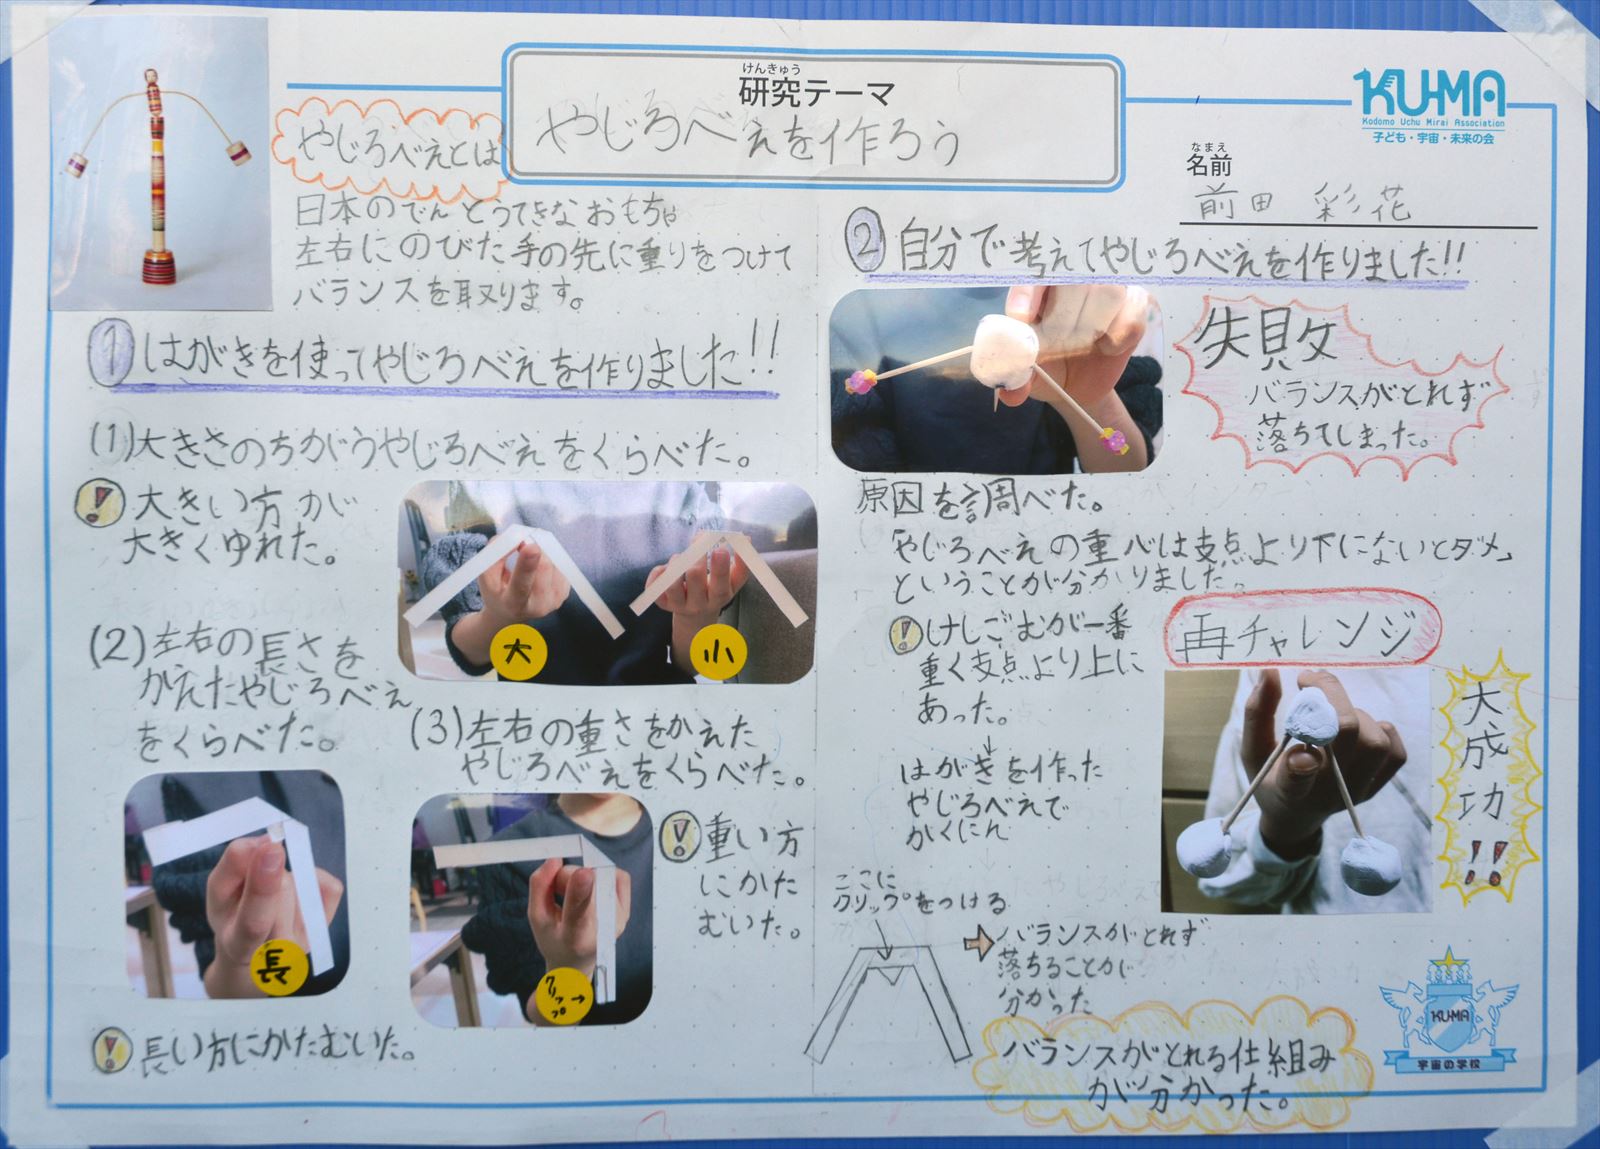 けんきゅう
研究テーマ
やじろべえを作ろう
KU-MA
Kodomo Uchu Mirai Association
子ども・宇宙・未来の会
なまえ
名前
前田 彩花
やじろべえとは
日本のでんとうてきなおもちゃ
左右にのびた手の先に重りをつけて
バランスを取ります。
① はがきを使ってやじろべえを作りました!!
(1)大きさのちがうやじろべえをくらべた。
! 大きい方が
大きくゆれた。
大
小
(2)左右の長さを
かえたやじろべえ
をくらべた。
長
! 長い方にかたむいた。
(3)左右の重さをかえた
やじろべえをくらべた。
クリップ→
! 重い方
にかた
むいた。
② 自分で考えてやじろべえを作りました!!
失敗
バランスがとれず
落ちてしまった。
原因を調べた。
「やじろべえの重心は支点より下にないとダメ」
ということが分かりました。
! けしごむが一番
重く支点より上に
あった。
↓
はがきを作った
やじろべえで
かくにん
ここに
クリップをつける
⇨バランスがとれず
落ちることが
分かった
再チャレンジ
大成功!!
バランスがとれる仕組み
が分かった。
KU-MA
宇宙の学校